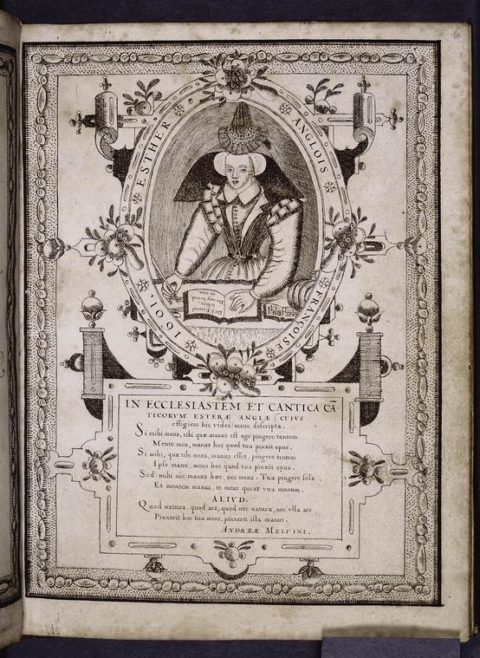 ESTHER ANGLOIS FRANÇOISE 1601.
IN ECCLESIASTEM ET CANTICA CĀ
TICORUM ESTERÆ ANGLÆ (CUIUS
effigiem hic vides) manu descripta.
Si mihi mens, tibi quæ manus est ego pingere tentem
Mente mea, manus hoc quod tua pinxit opus.
Si mihi, quæ tibi mens, manus esset, pingere tentem
Ipse manu, mens hoc quod tua pinxit opus.
Sed mihi nec manus hæc, nec mens. Tua pingere sola
Et mentem manus, et mens queat una manum.
ALIUD.
Quod natura, quod ars, quod nec natura, nec ulla ars
Pinxerit hoc tua mens, pinxerit ista manus.
ANDREÆ MELVINI.